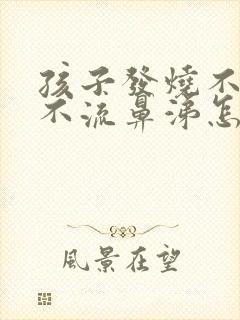 孩子發燒不
不流鼻涕怎
風景在望